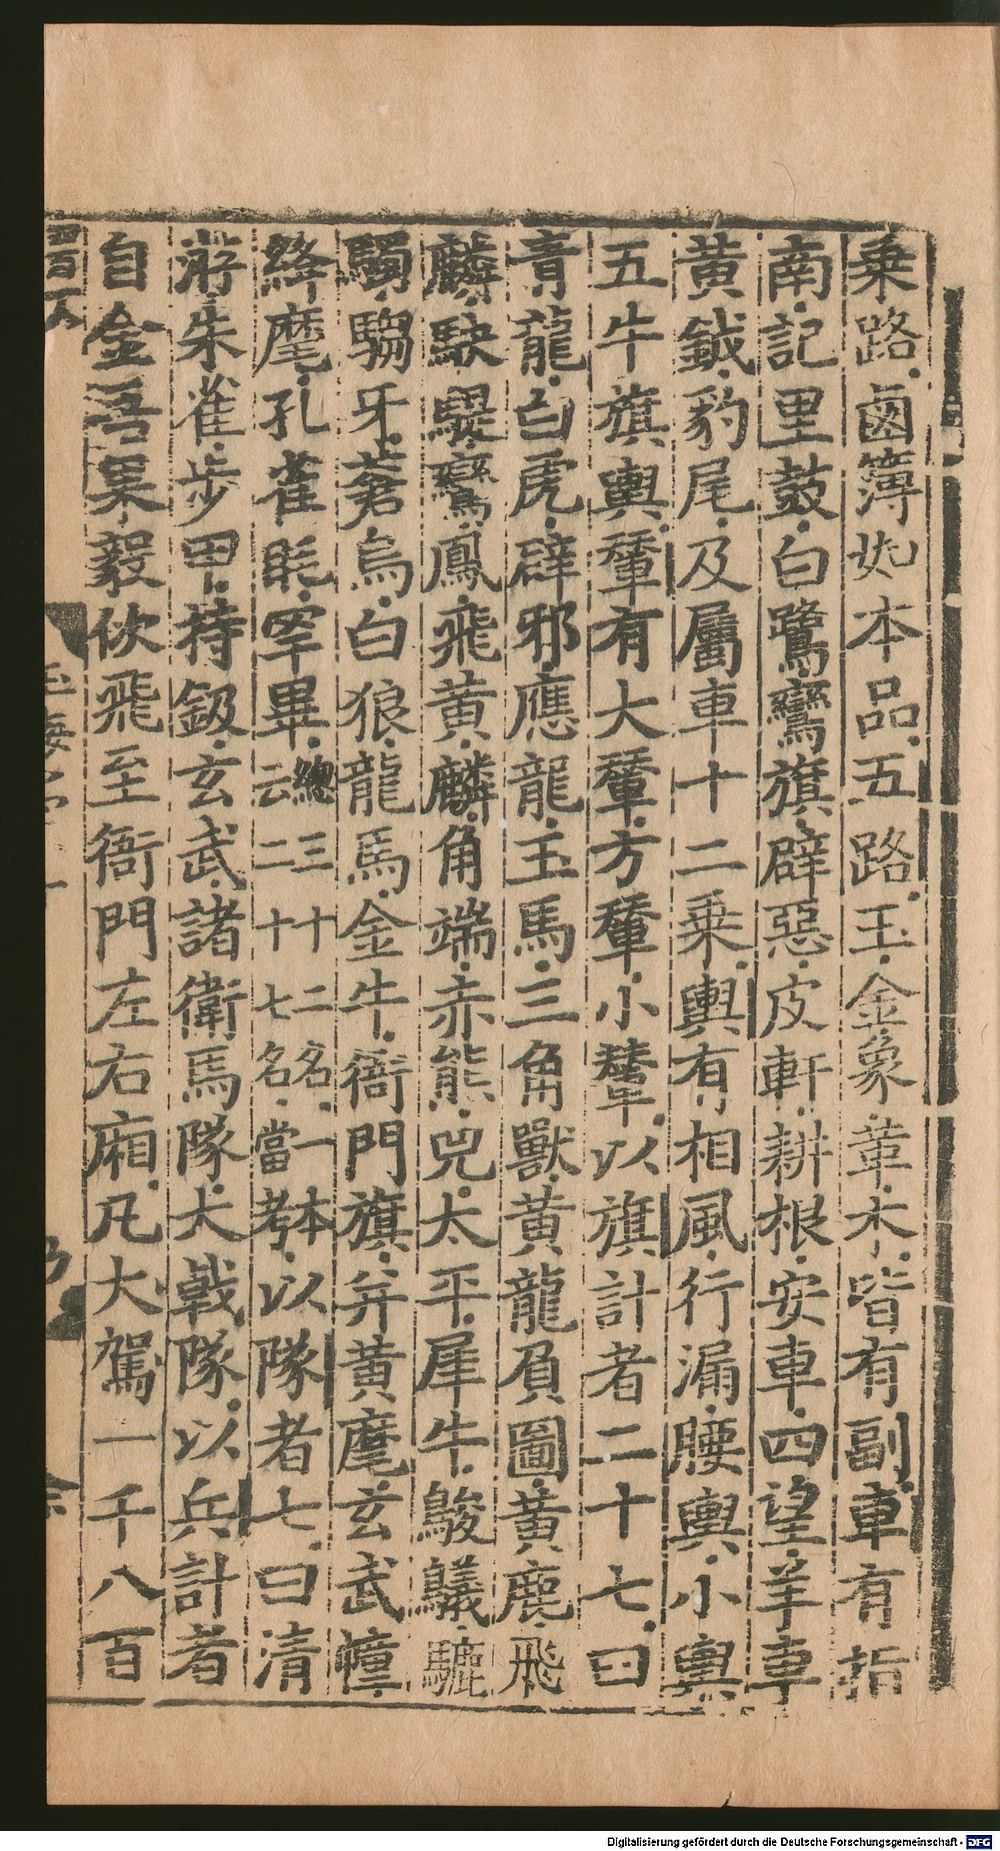 乗路鹵簿如本品五路玉金象革木皆有副車有指
南記里鼓白鷺鸞旗辟惡皮軒耕根安車四望羊車
黃鉞豹尾及屬車十二乗輿有相風行漏腰輿小輿
五牛旗輿輦有大輦方輦小輦以旗計者二十七曰
青龍白虎辟邪應龍玉馬三角獸黃龍負圖黃鹿飛
麟駃騠鸞鳳飛黃麟角端赤熊兕太平犀牛駿䴊騼
騶牙蒼烏白狼龍馬金牛衙門旗弁黃麾玄武幢
絳麾孔雀㲨罕畢總三十二名一本
云二十七名當考以隊者七曰清
游朱雀步甲持鈒玄武諸衛馬隊大戟隊以兵計者
自金吾果毅佽飛至衙門左右廂凡大駕一千八百
Digitalisierung gefördert durch die Deutsche Forschungsgemeinschaft - DFG